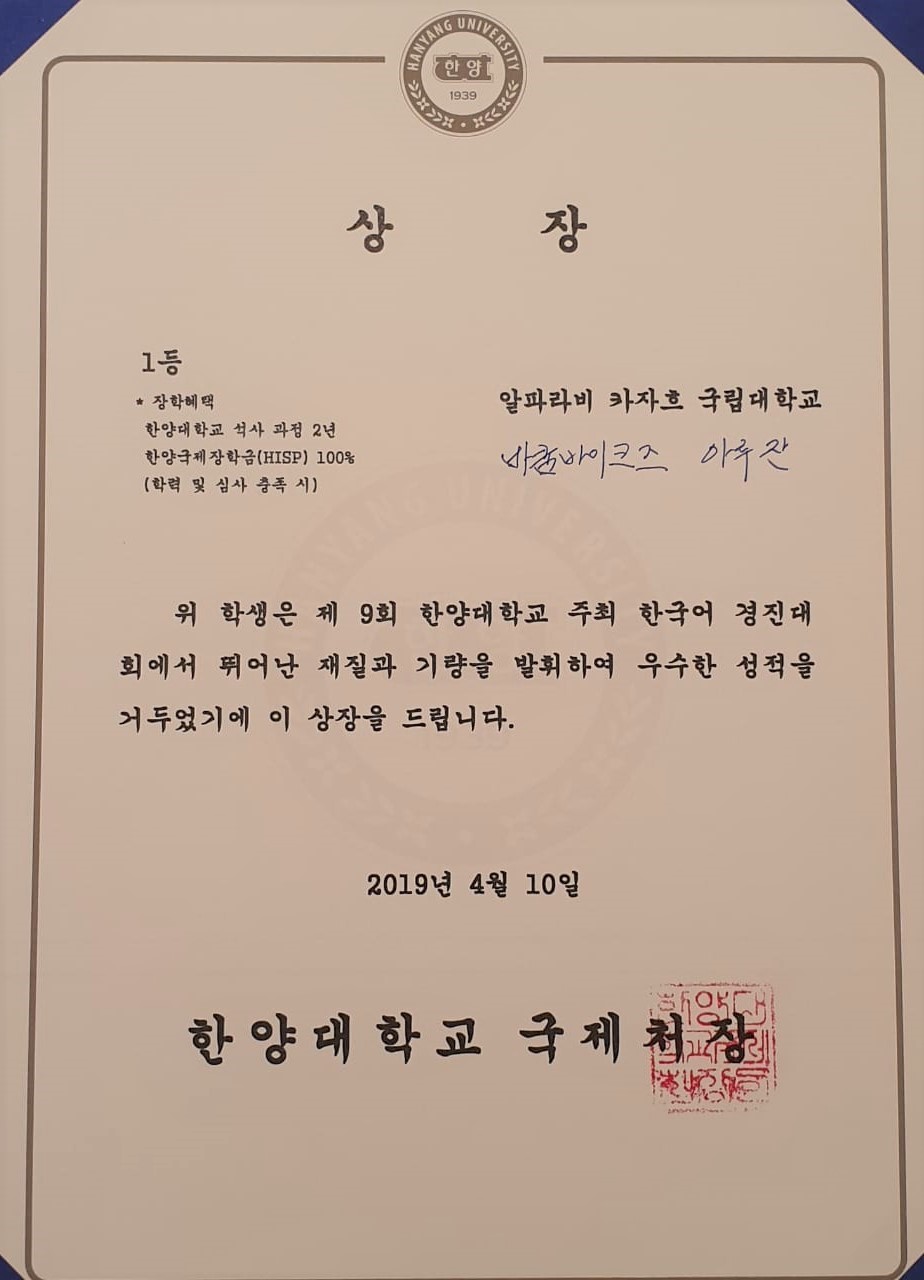 HANYANG UNIVERSITY
한양
1939
상 장
1등
* 장학혜택
한양대학교 석사 과정 2년
한양국제장학금(HISP) 100%
(학력 및 심사 충족 시)
알파라비 카자흐 국립대학교
아루잔
위 학생은 제 9회 한양대학교 주최 한국어 경진대
회에서 뛰어난 재질과 기량을 발휘하여 우수한 성적을
거두었기에 이 상장을 드립니다.
2019년 4월 10일
한양대학교 국제처장